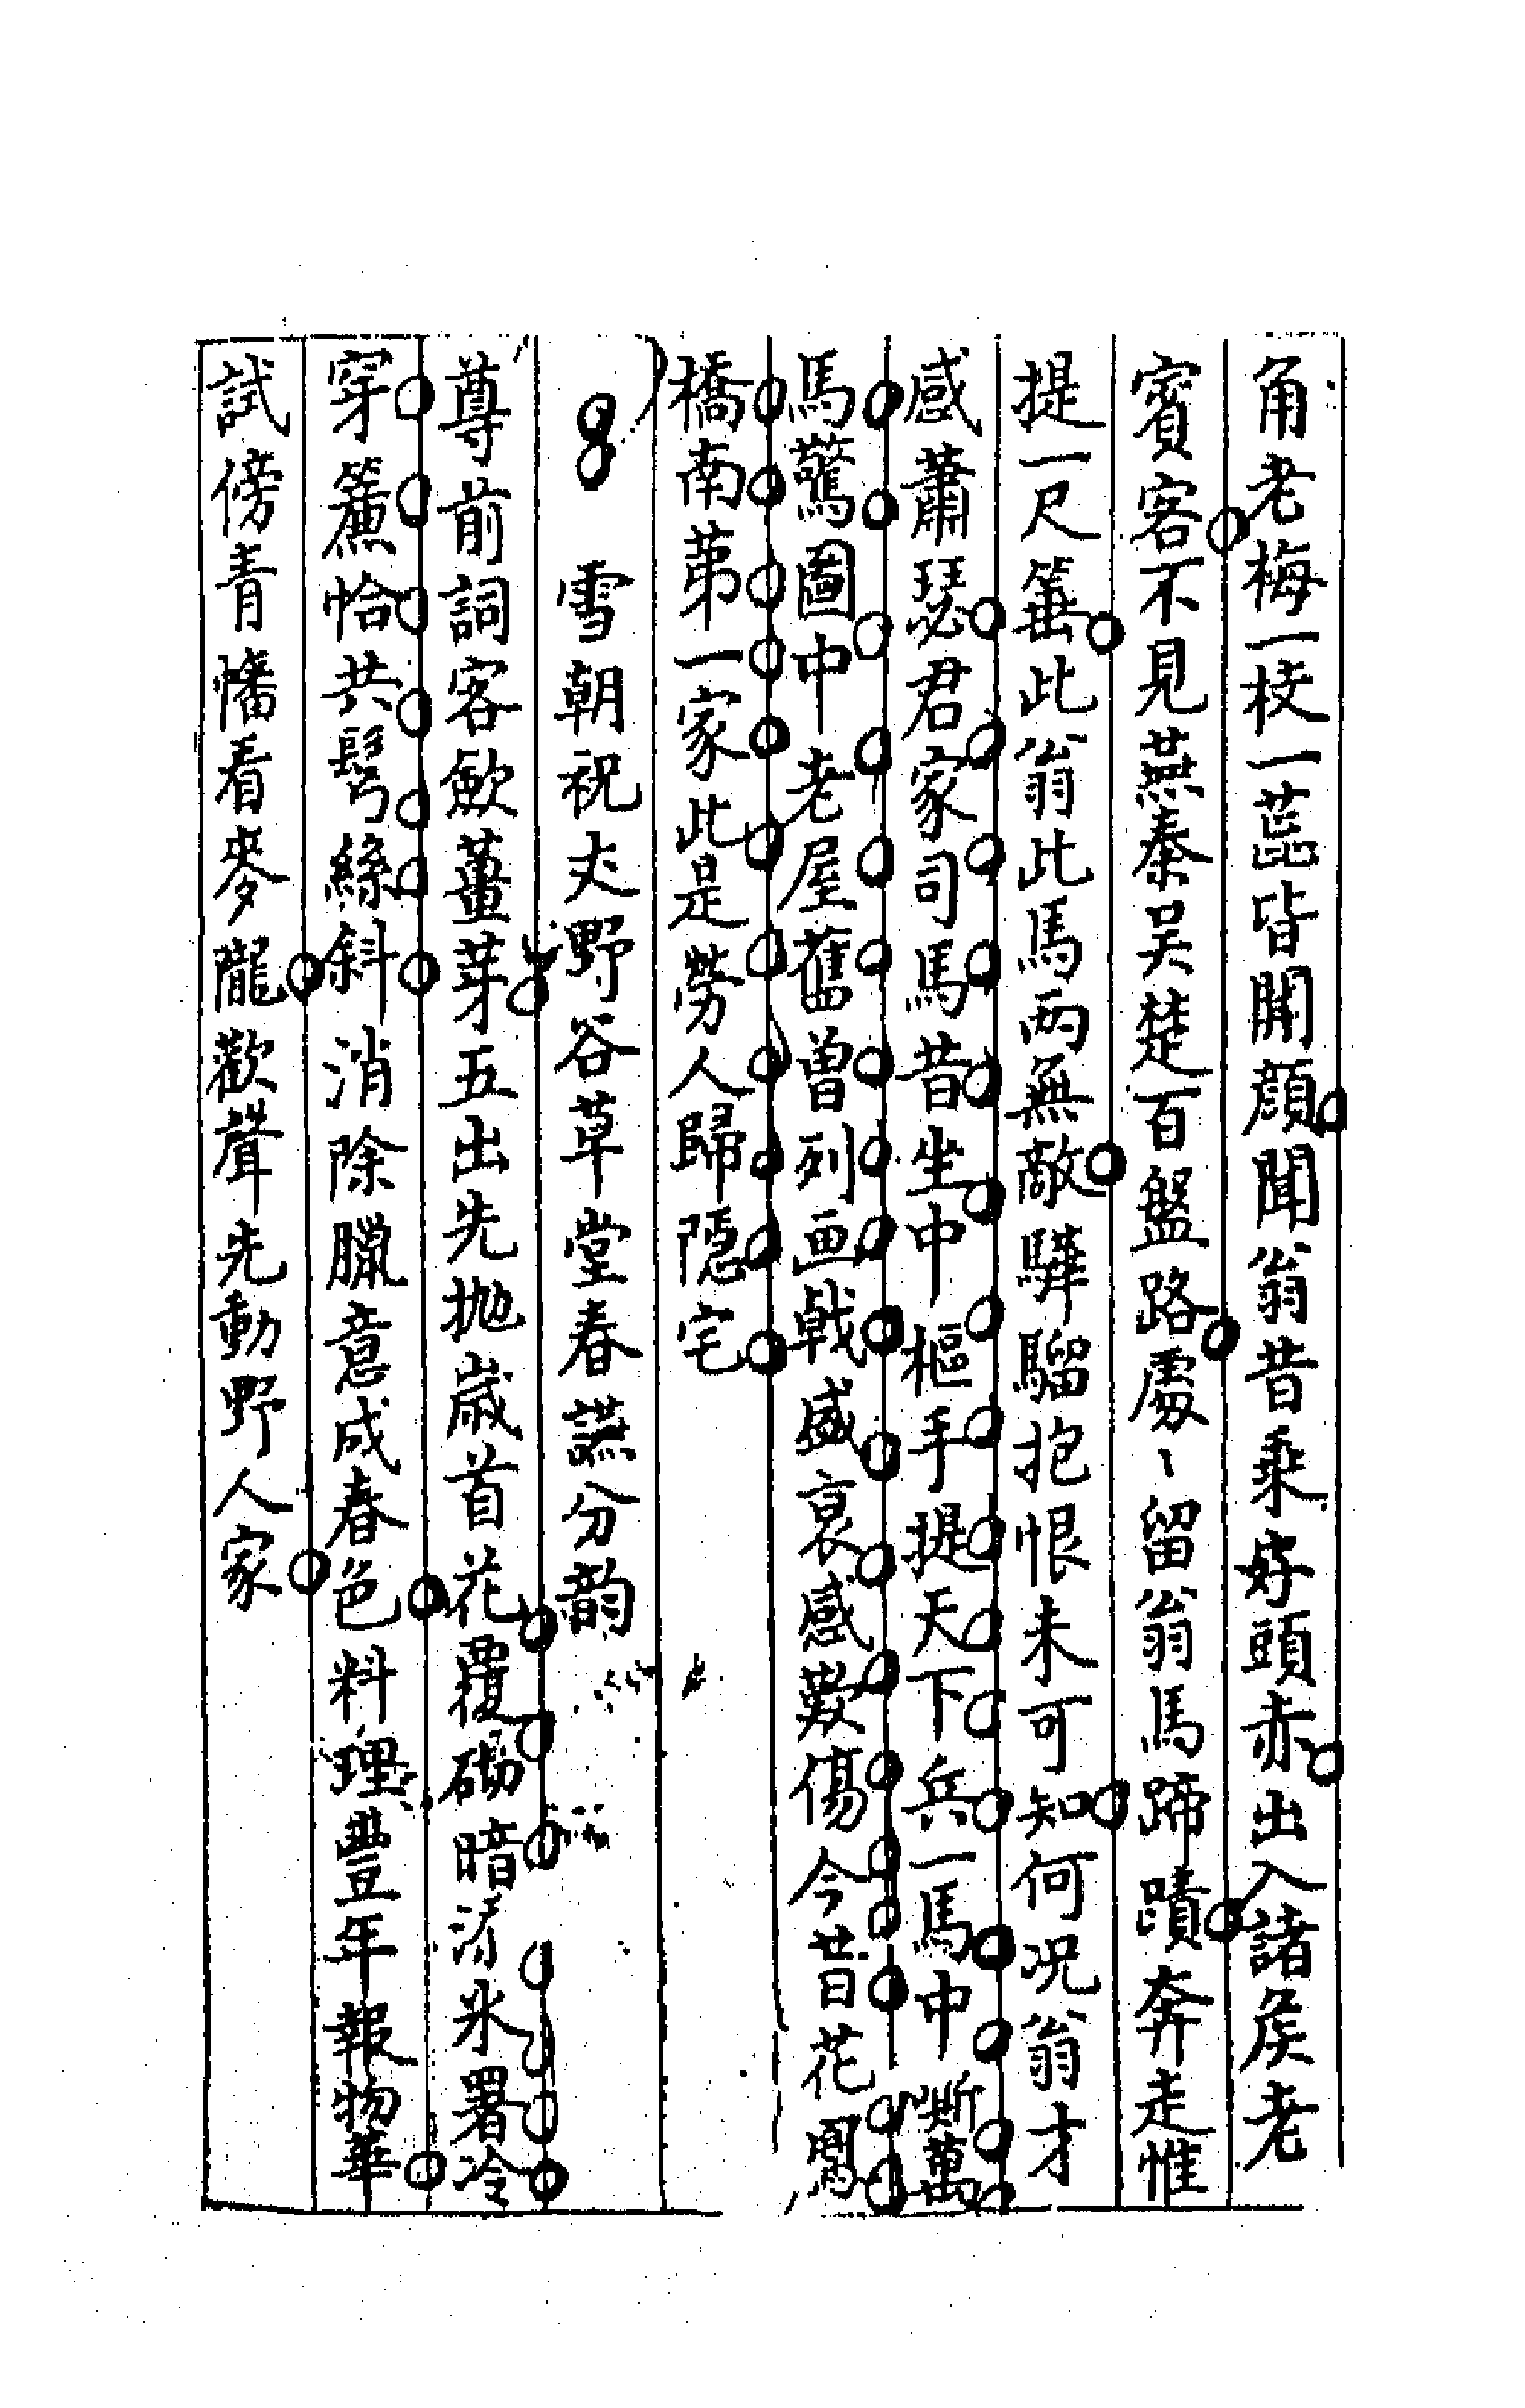 角老梅一枝一蕋皆開顔聞翁昔乘好頭赤出入諸侯老
賓客不見燕秦吴楚百盤路處〻留翁馬蹄蹟奔走惟
提一尺箠此翁此馬兩無敵驊騮抱恨未可知何况翁才
感蕭瑟君家司馬昔坐中樞手提天下兵一馬中嘶萬
馬驚圖中老屋舊曽列画戟盛衰感歎傷今昔花鳬
橋南苐一家此是勞人歸隐宅
雪朝祝丈野谷草堂春讌分韵
尊前詞客歃薑芽五出先抛歳首花覆砌暗滂氷署冷
穿簾恰共鬓絲斜消除臘意成春色料理豐年報物華
試傍青幡看麥隴歡聲先動野人家